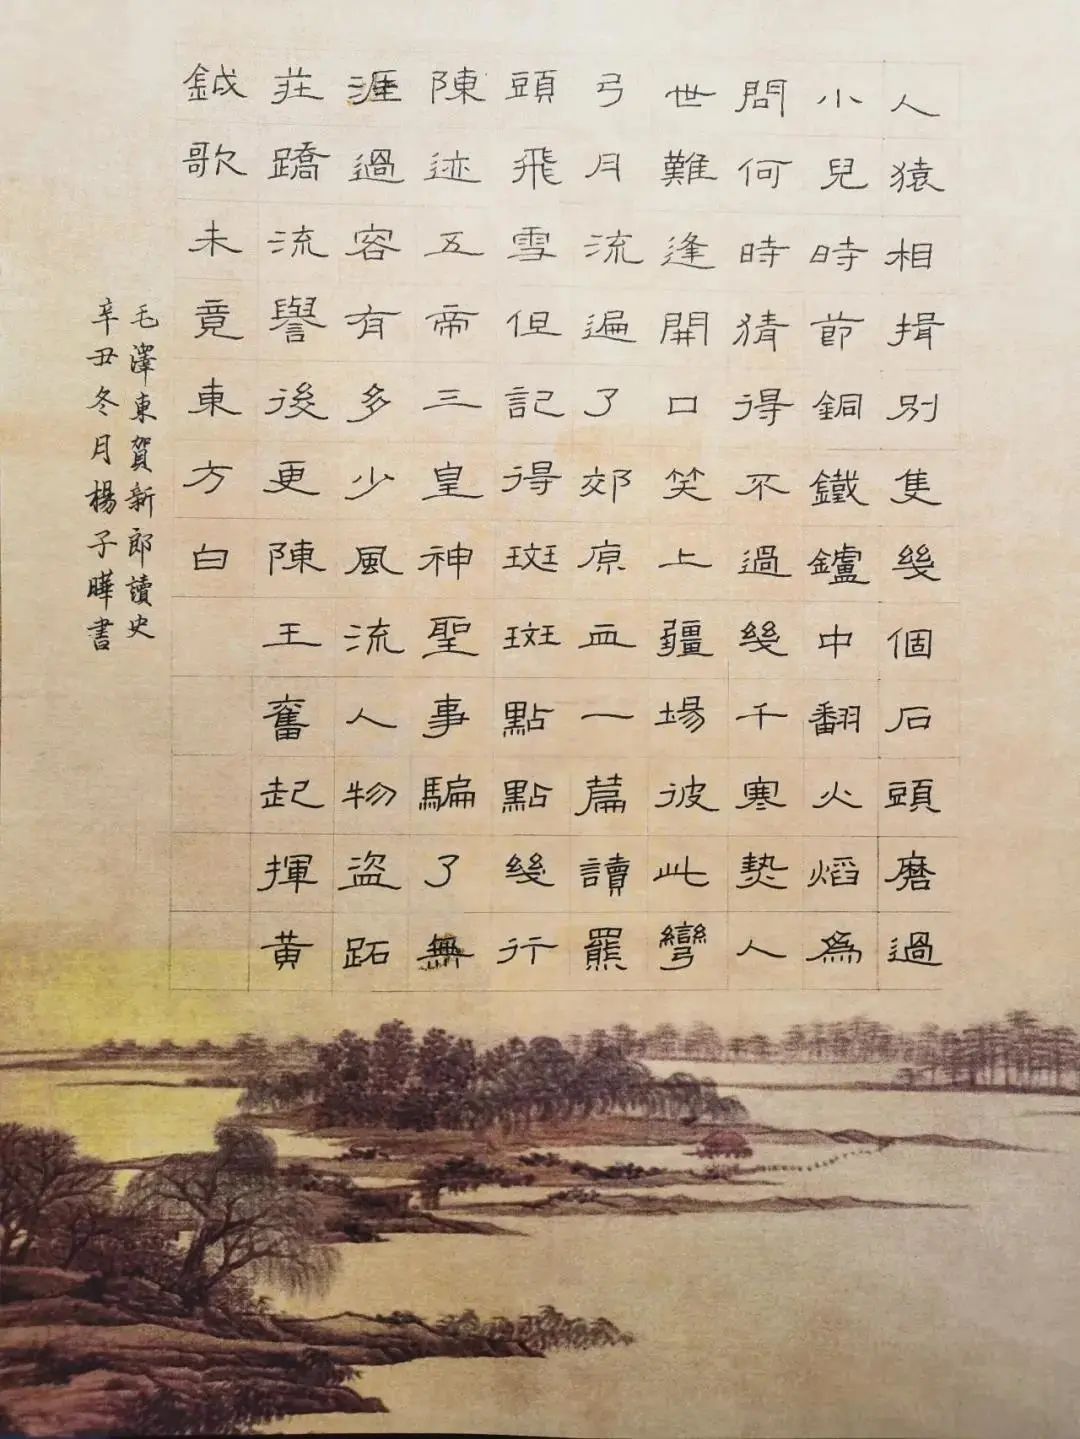 人猿相揖別隻幾個石頭磨過
小兒時節銅鐵鑪中翻火焰為
問何時猜得不過幾千寒熱人
世難逢開口笑上疆場彼此彎
弓月流遍了郊原血一篇讀羆
頭飛雪但記得斑斑點點幾行
陳迹五帝三皇神聖事騙了無
涯過容有多少風流人物盜跖
莊蹻流譽後更陳王奮起揮黃
鉞歌未竟東方白
毛澤東賀新郎讀史
辛丑冬月楊子曄書